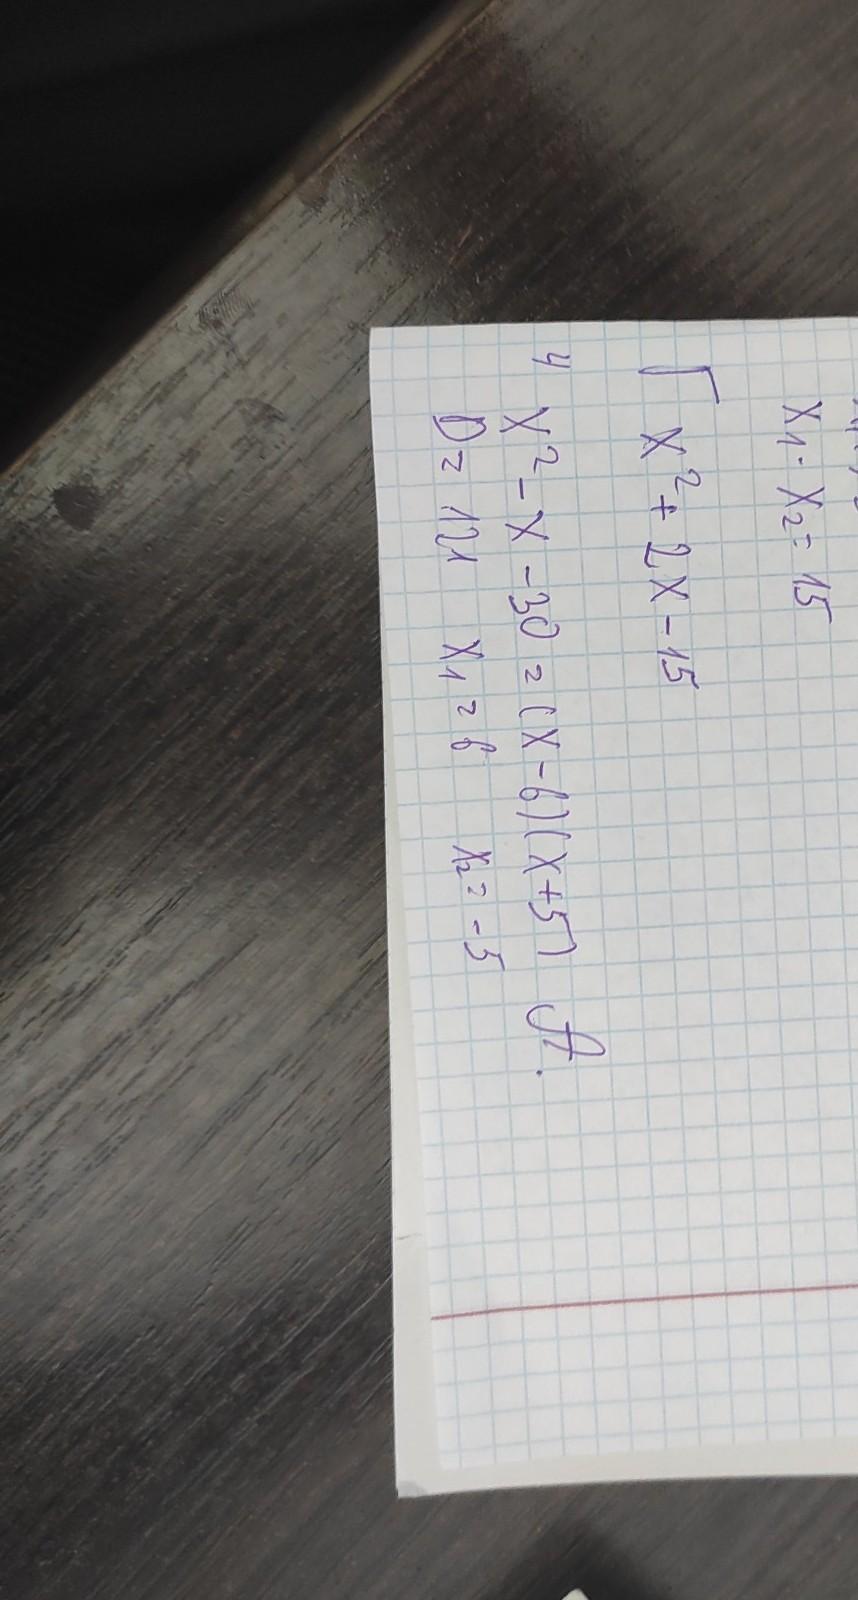 x₁· x₂ = 15
Г x² + 2x - 15
4 x² - x - 30 = (x - 6)(x + 5) А.
D = 121 x₁ = 6 x₂ = -5